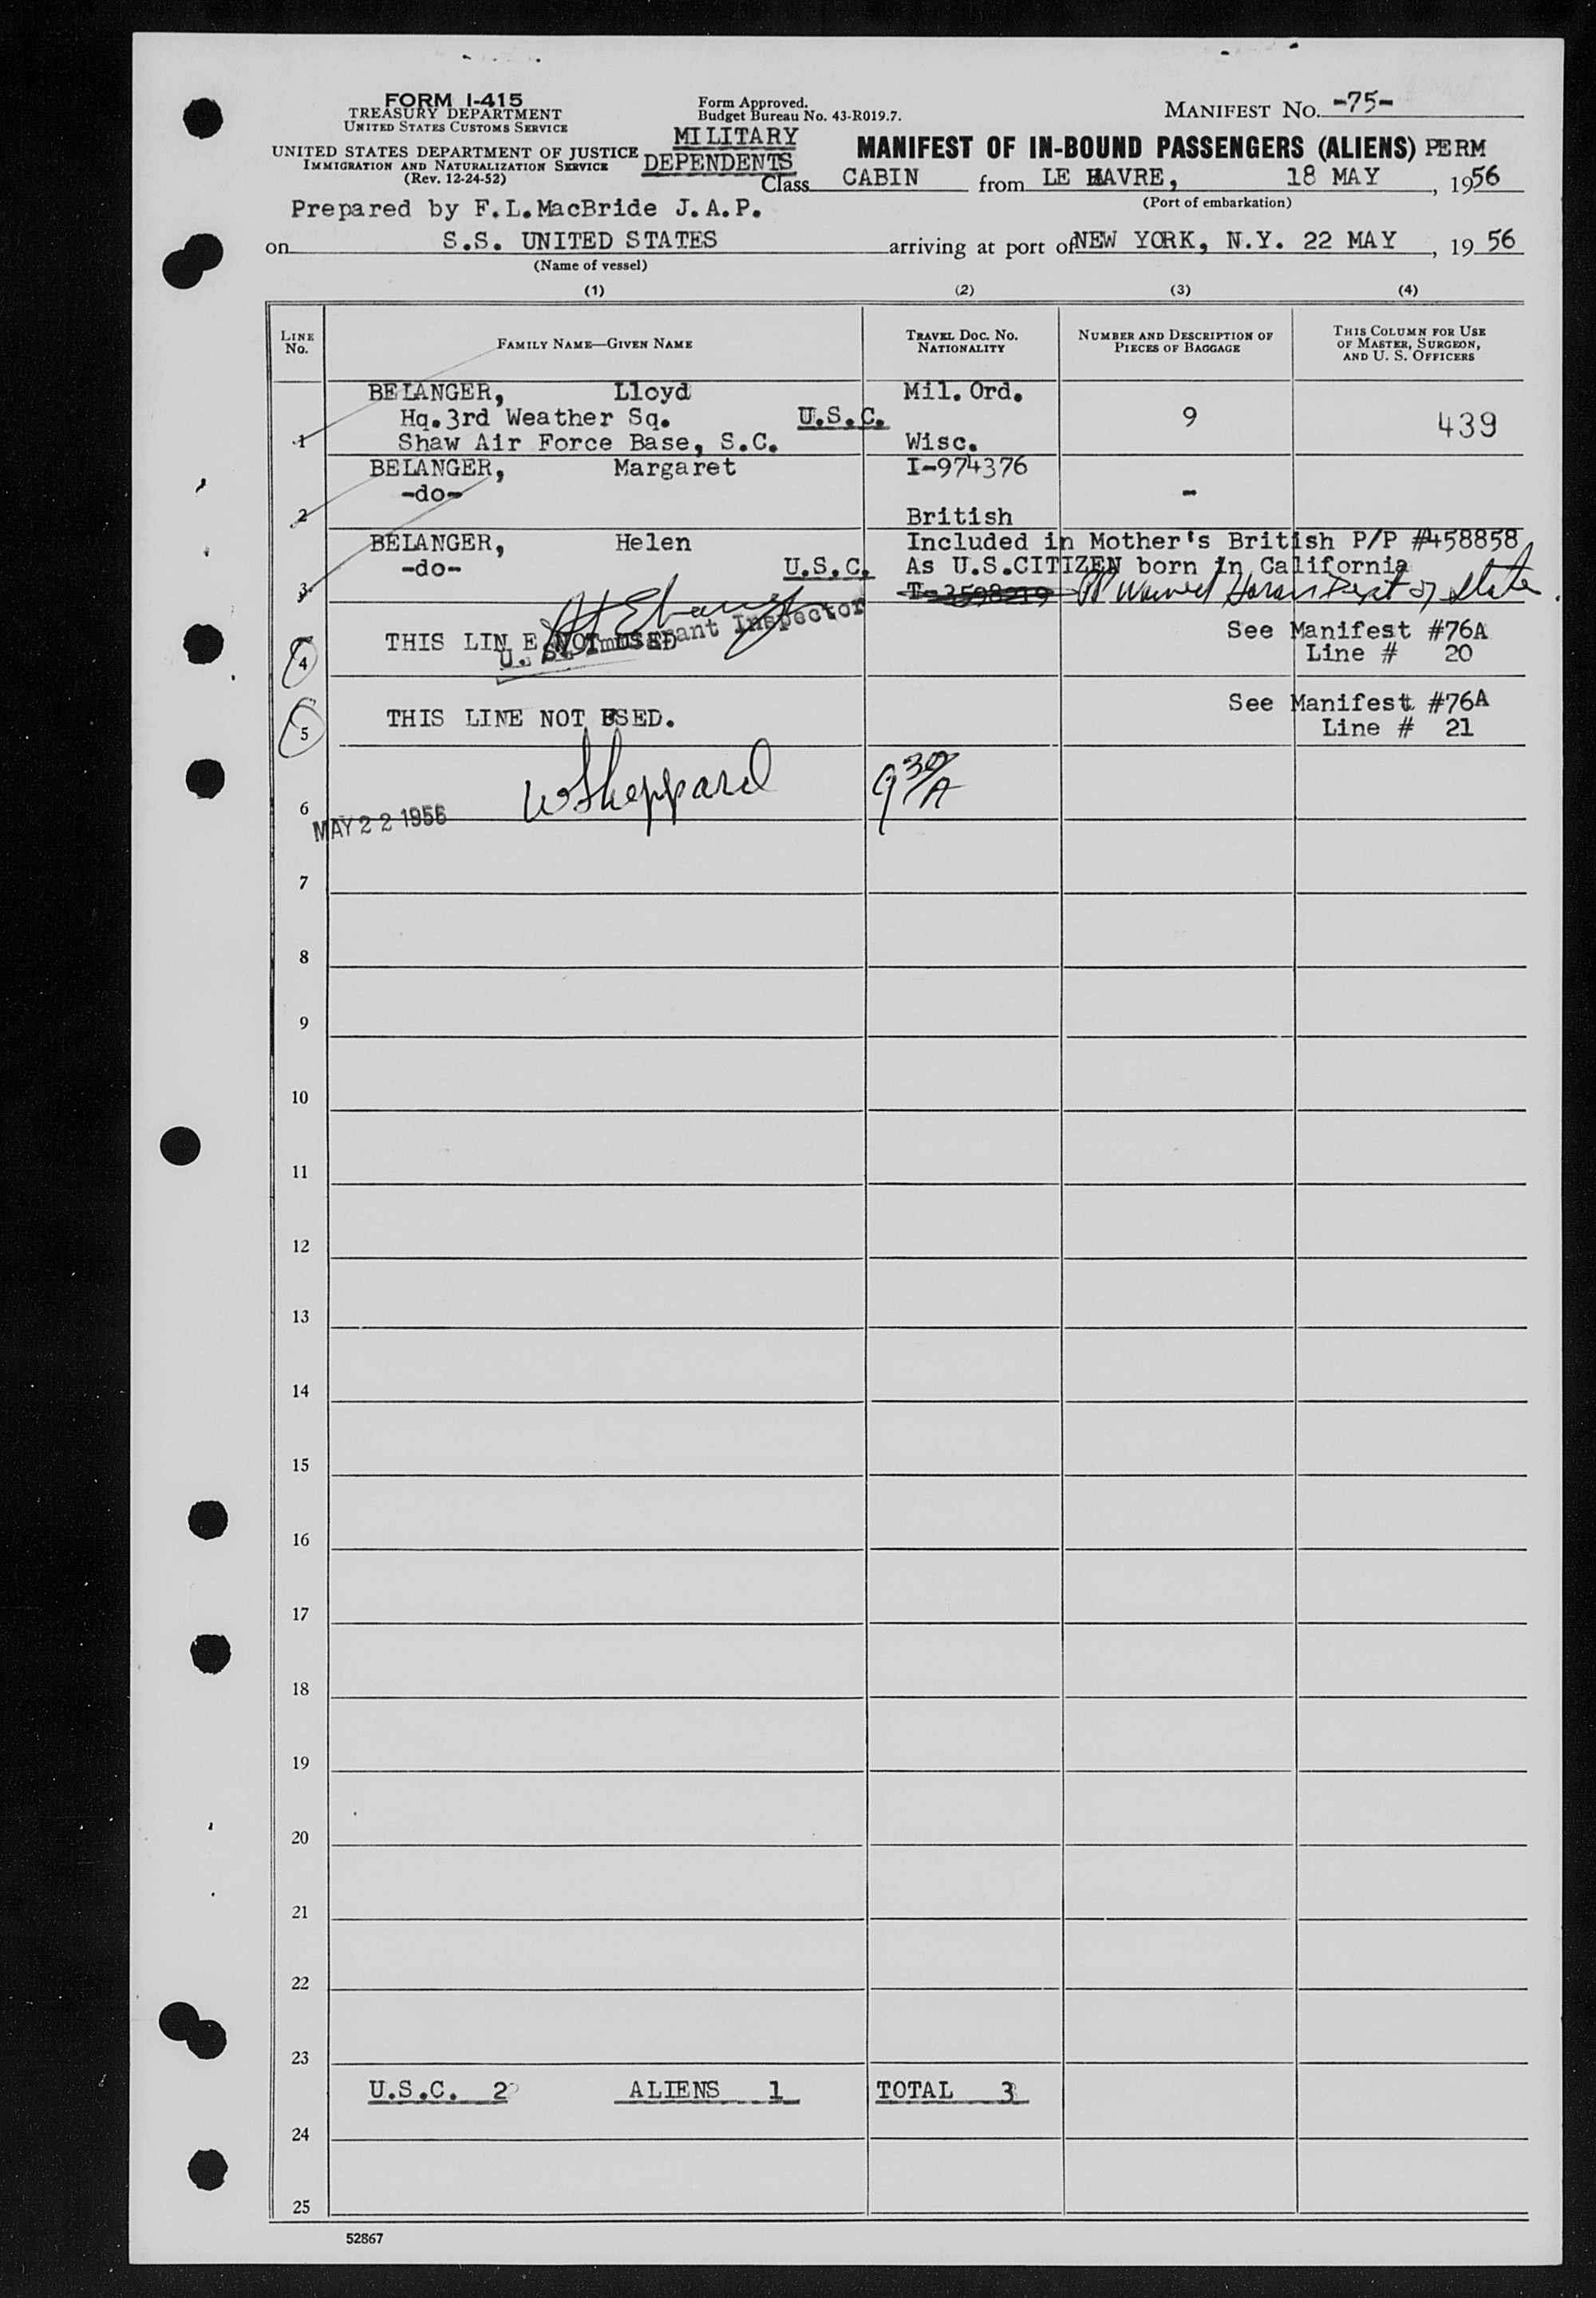 FORM I-415
TREASURY DEPARTMENT
UNITED STATES CUSTOMS SERVICE
UNITED STATES DEPARTMENT OF JUSTICE
IMMIGRATION AND NATURALIZATION SERVICE
(Rev. 12-24-52)
Form Approved.
Budget Bureau No. 43-R019.7.
MILITARY
DEPENDENTS
MANIFEST NO. -75-
MANIFEST OF IN-BOUND PASSENGERS (ALIENS) PERM
Class CABIN from LE HAVRE, 18 MAY, 1956
(Port of embarkation)
Prepared by F.L.MacBride J.A.P.
on S.S. UNITED STATES arriving at port of NEW YORK, N.Y. 22 MAY, 19 56
(Name of vessel)
(1) (2) (3) (4)
LINE No. FAMILY NAME—GIVEN NAME TRAVEL DOC. NO. NATIONALITY NUMBER AND DESCRIPTION OF PIECES OF BAGGAGE THIS COLUMN FOR USE OF MASTER, SURGEON, AND U. S. OFFICERS
BELANGER, Lloyd Mil. Ord.
Hq.3rd Weather Sq. U.S.C. 9 439
1 Shaw Air Force Base, S.C. Wisc.
BELANGER, Margaret I-974376
-do- -
2 British
BELANGER, Helen Included in Mother's British P/P #458858
-do- U.S.C. As U.S.CITIZEN born in California
3 T-3598219 PP Waived Dept of State.
U. S. Immigrant Inspector
4 THIS LIN E NOT USED See Manifest #76A
Line # 20
5 THIS LINE NOT USED. See Manifest #76A
Line # 21
W Sheppard 9 30/A
6
MAY 22 1956
7
8
9
10
11
12
13
14
15
16
17
18
19
20
21
22
23
U.S.C. 2 ALIENS 1 TOTAL 3
24
25
52867